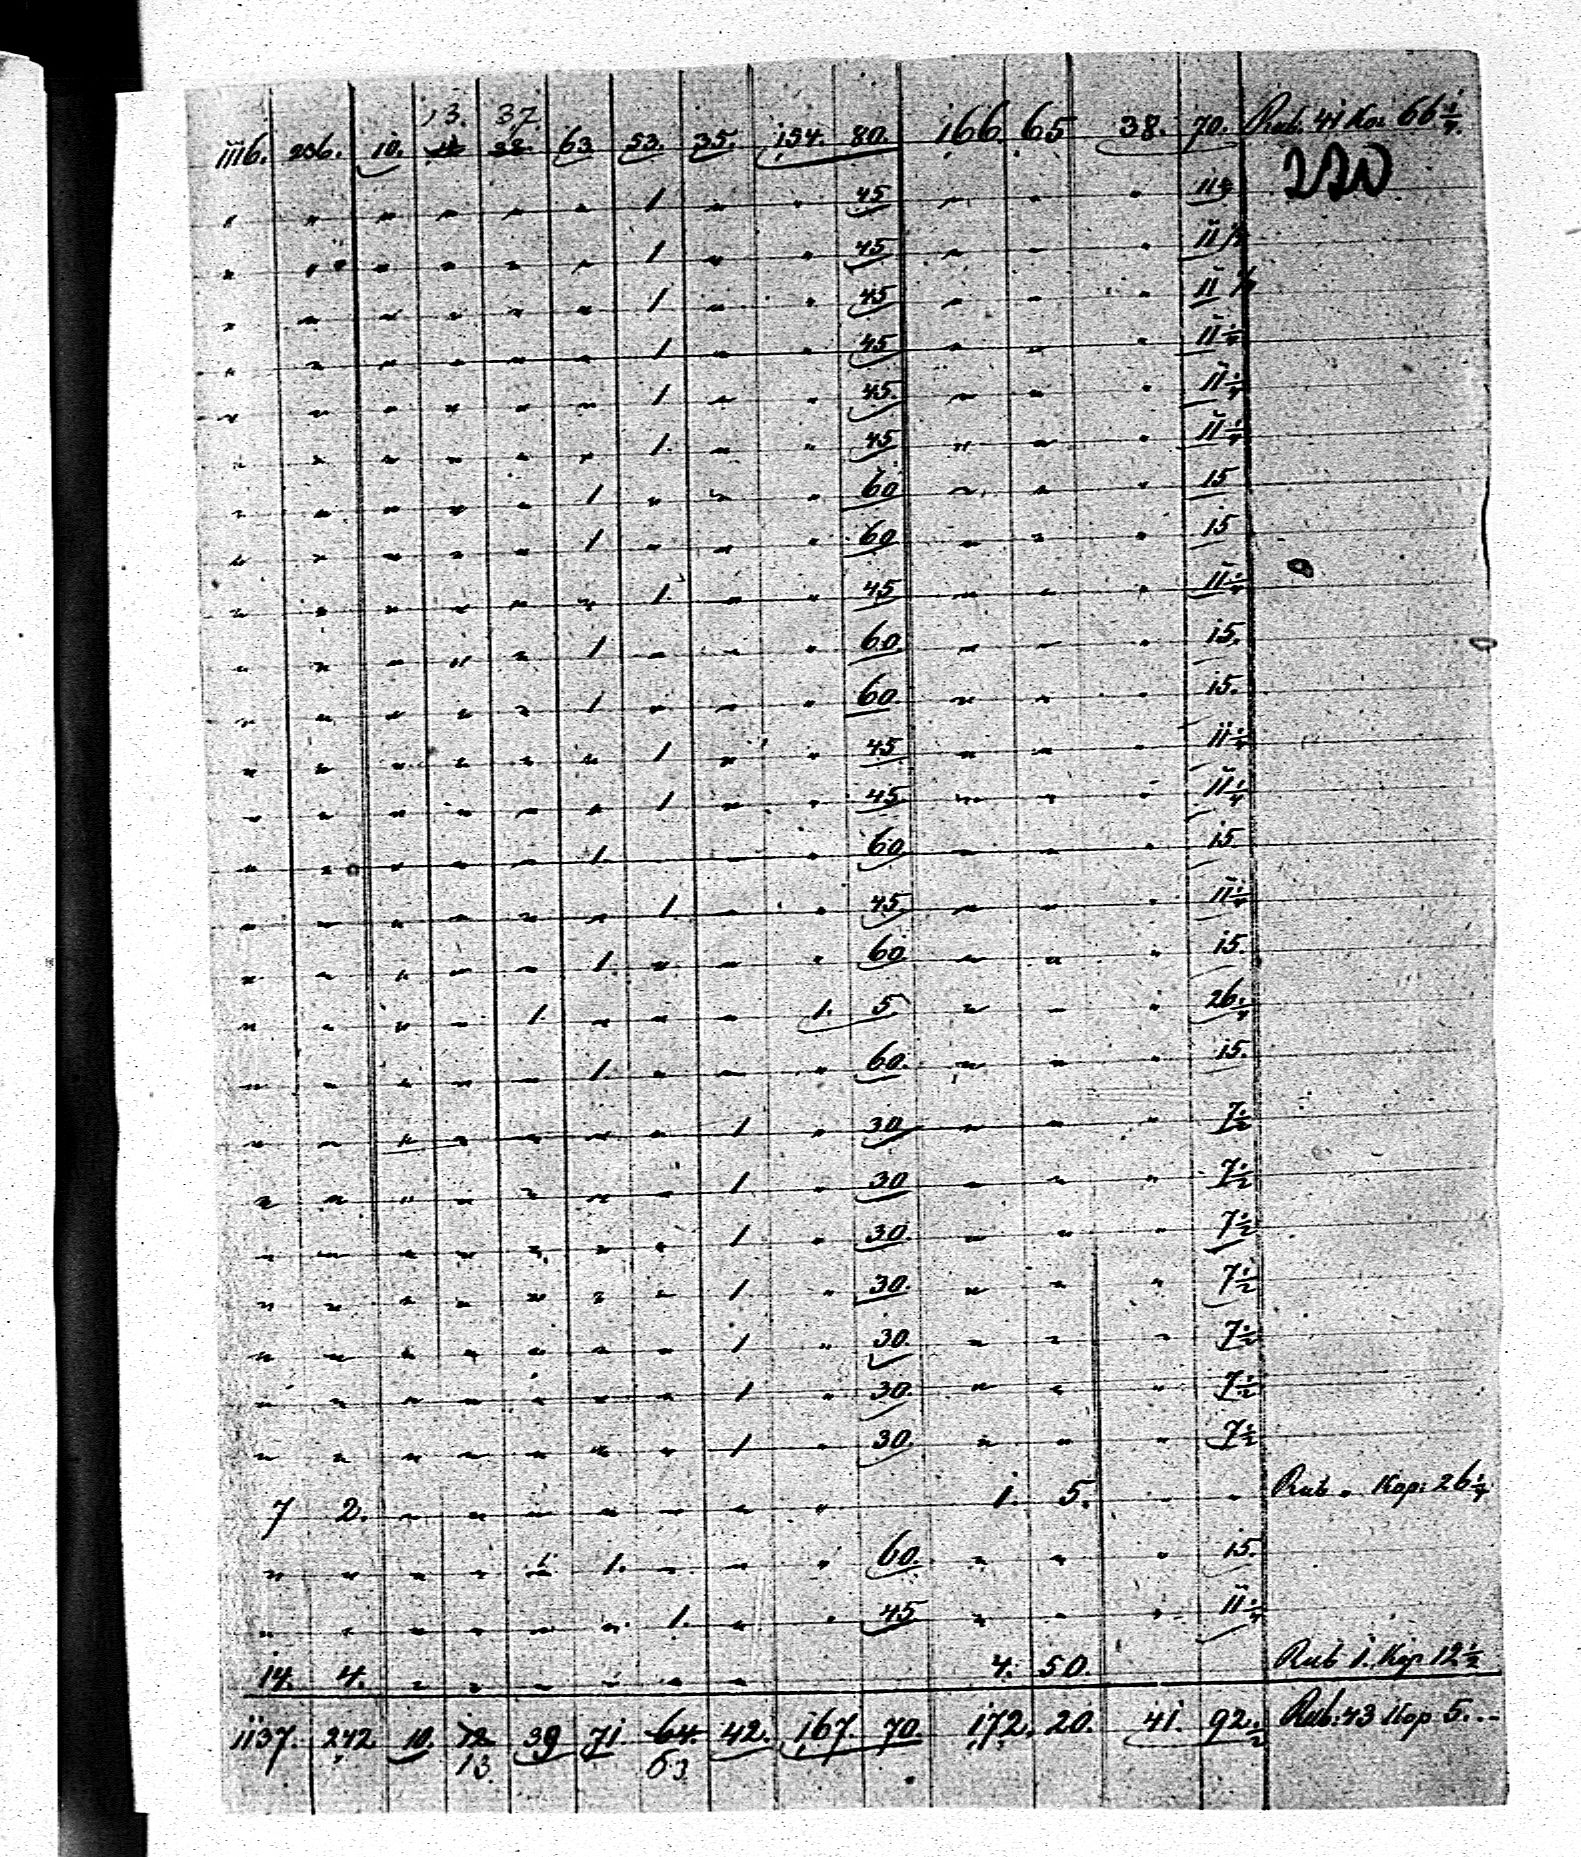 13. 37.
1116. 236. 10. 12 38 63 53. 35. 154. 80. 166. 65 38. 70. Rub. 41 Kop. 66 1/4.
220
" " " " " " 1 " " 45 " " " 11 1/4
" " " " " " 1 " " 45 " " " 11 1/4
" " " " " " 1 " " 45 " " " 11 1/4
" " " " " " 1 " " 45 " " " 11 1/4
" " " " " " 1 " " 45. " " " 11 1/4
" " " " " " 1. " " 45 " " " 11 1/4
" " " " " 1 " " " 60 " " " 15
" " " " " 1 " " " 60 " " " 15
" " " " " " 1. " " 45 " " " 11 1/4
" " " " " 1 " " " 60 " " " 15.
" " " " " 1 " " " 60. " " " 15.
" " " " " " 1 " " 45 " " " 11 1/4
" " " " " " 1 " " 45. " " " 11 1/4
" " " " " 1. " " 60 " " " 15.
" " " " " " 1. " " 45. " " " 11 1/4
" " " " " 1. " " " 60 " " " 15.
" " " " 1. " " " 1. 5 " " " 26 1/4
" " " " " 1. " " " 60. " " " 15.
" " " " " " " 1 " 30 " " " 7 1/2
" " " " " " " 1 " 30 " " " 7 1/2
" " " " " " " 1 " 30. " " " 7 1/2
" " " " " " " 1. " 30. " " " 7 1/2
" " " " " " " 1 " 30. " " " 7 1/2
" " " " " " " 1 " 30. " " " 7 1/2
" " " " " " " 1 " 30. " " " 7 1/2
7 2. " " " " " " " 1. 5. " " Rub " Kop: 26 1/4
" " " " " 1. " " " 60. " " " 15.
" " " " " " 1. " " 45 " " " 11 1/4
14. 4. " " " " " " 4. 50. Rub 1. Kop 12 1/2
1137. 242 10. 12 39 71. 64. 42. 167. 70. 172. 20. 41. 92 1/2 Rub: 43 Kop 5. --
13 63